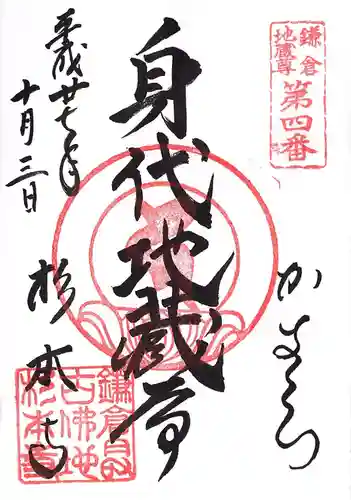 鎌倉
地蔵尊
第四番
かまくら
身代地蔵尊
平成廿七年
十月三日
杉本寺